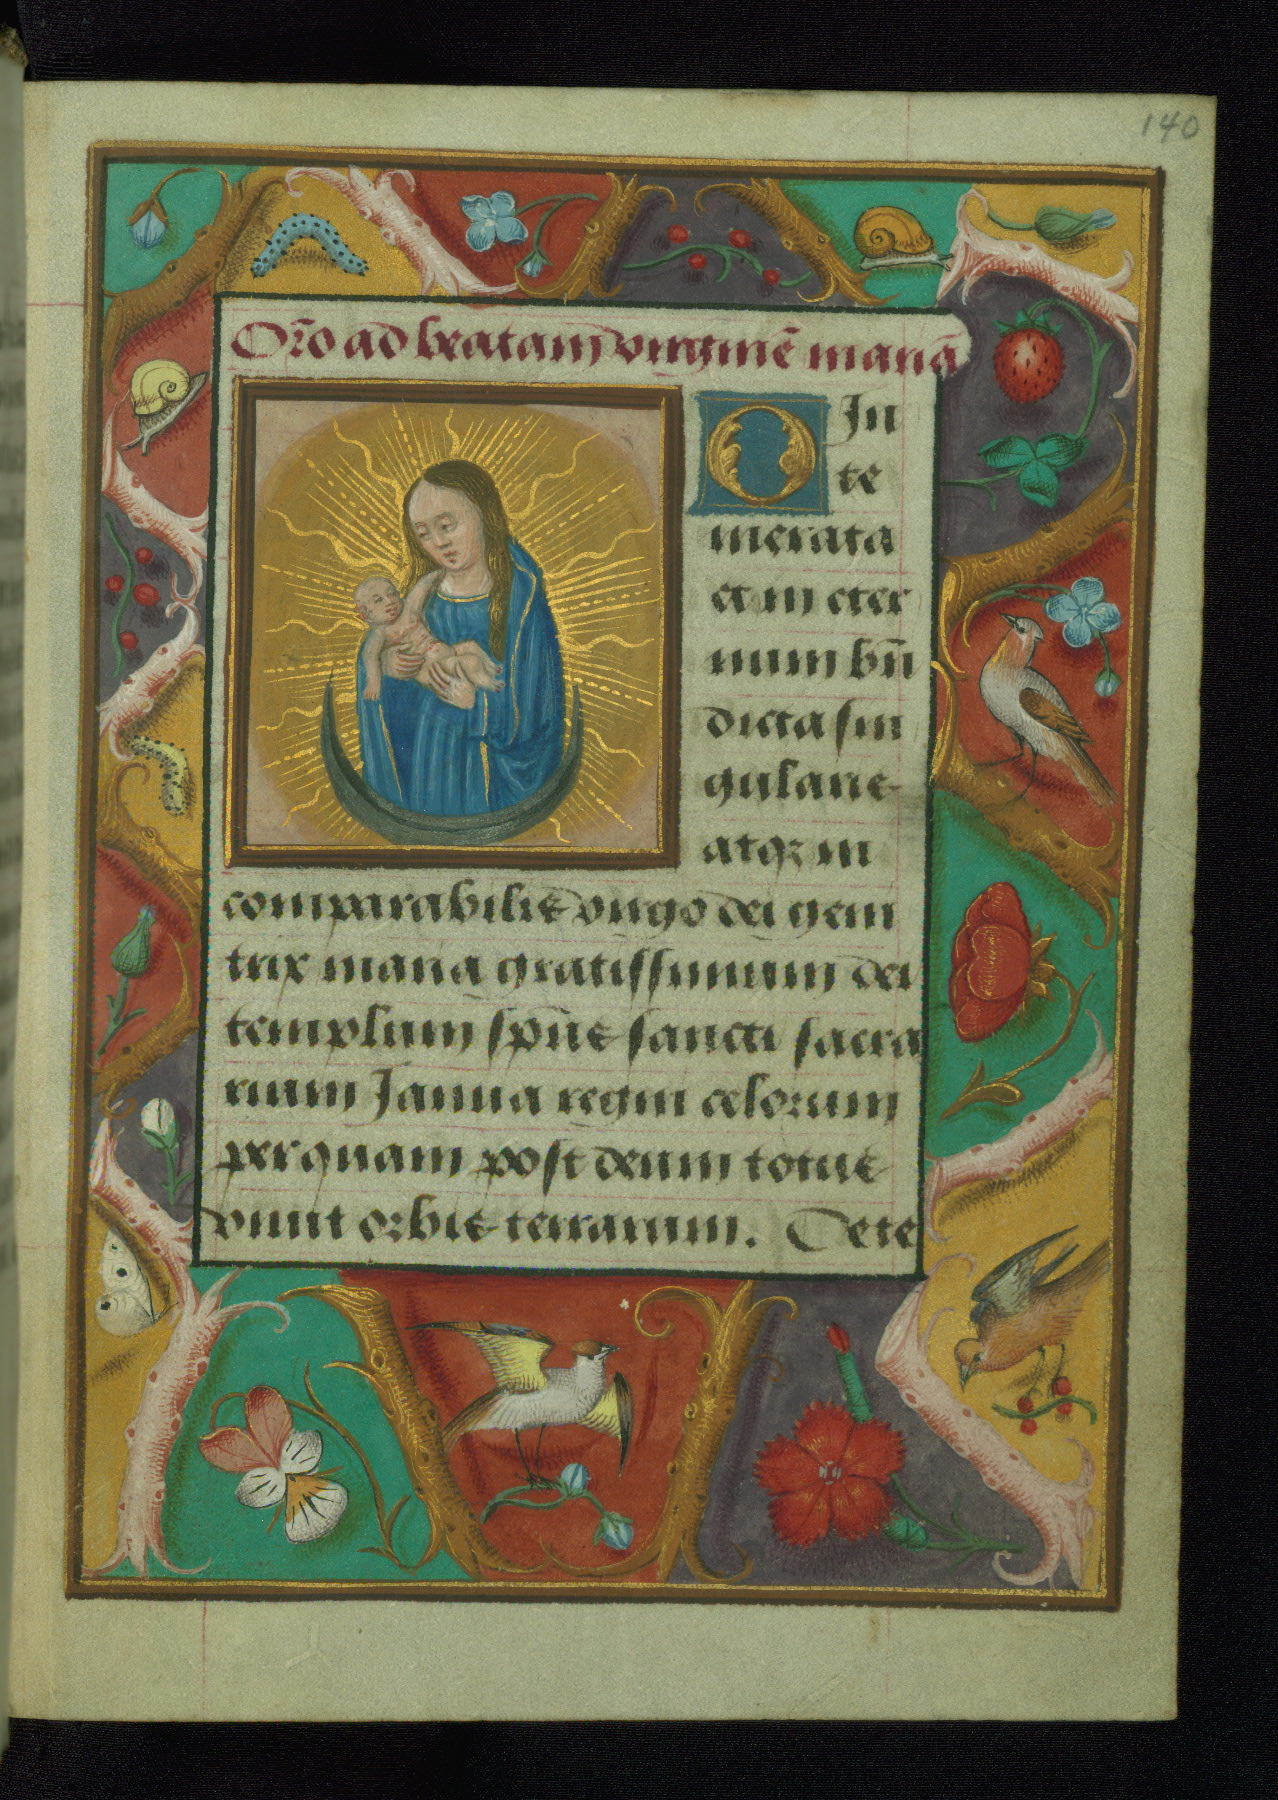 140
Or̄o ad beatam virginē mariā
O In
te
merata
et in eter
num bn̄
dicta sin
gularis
atqꝫ in
comparabilis virgo dei geni
trix maria gratissimum dei
templum sp̄us sancti sacra
rium Janua regni celorum
per quam post deum totus
viuit orbis terrarum. De te